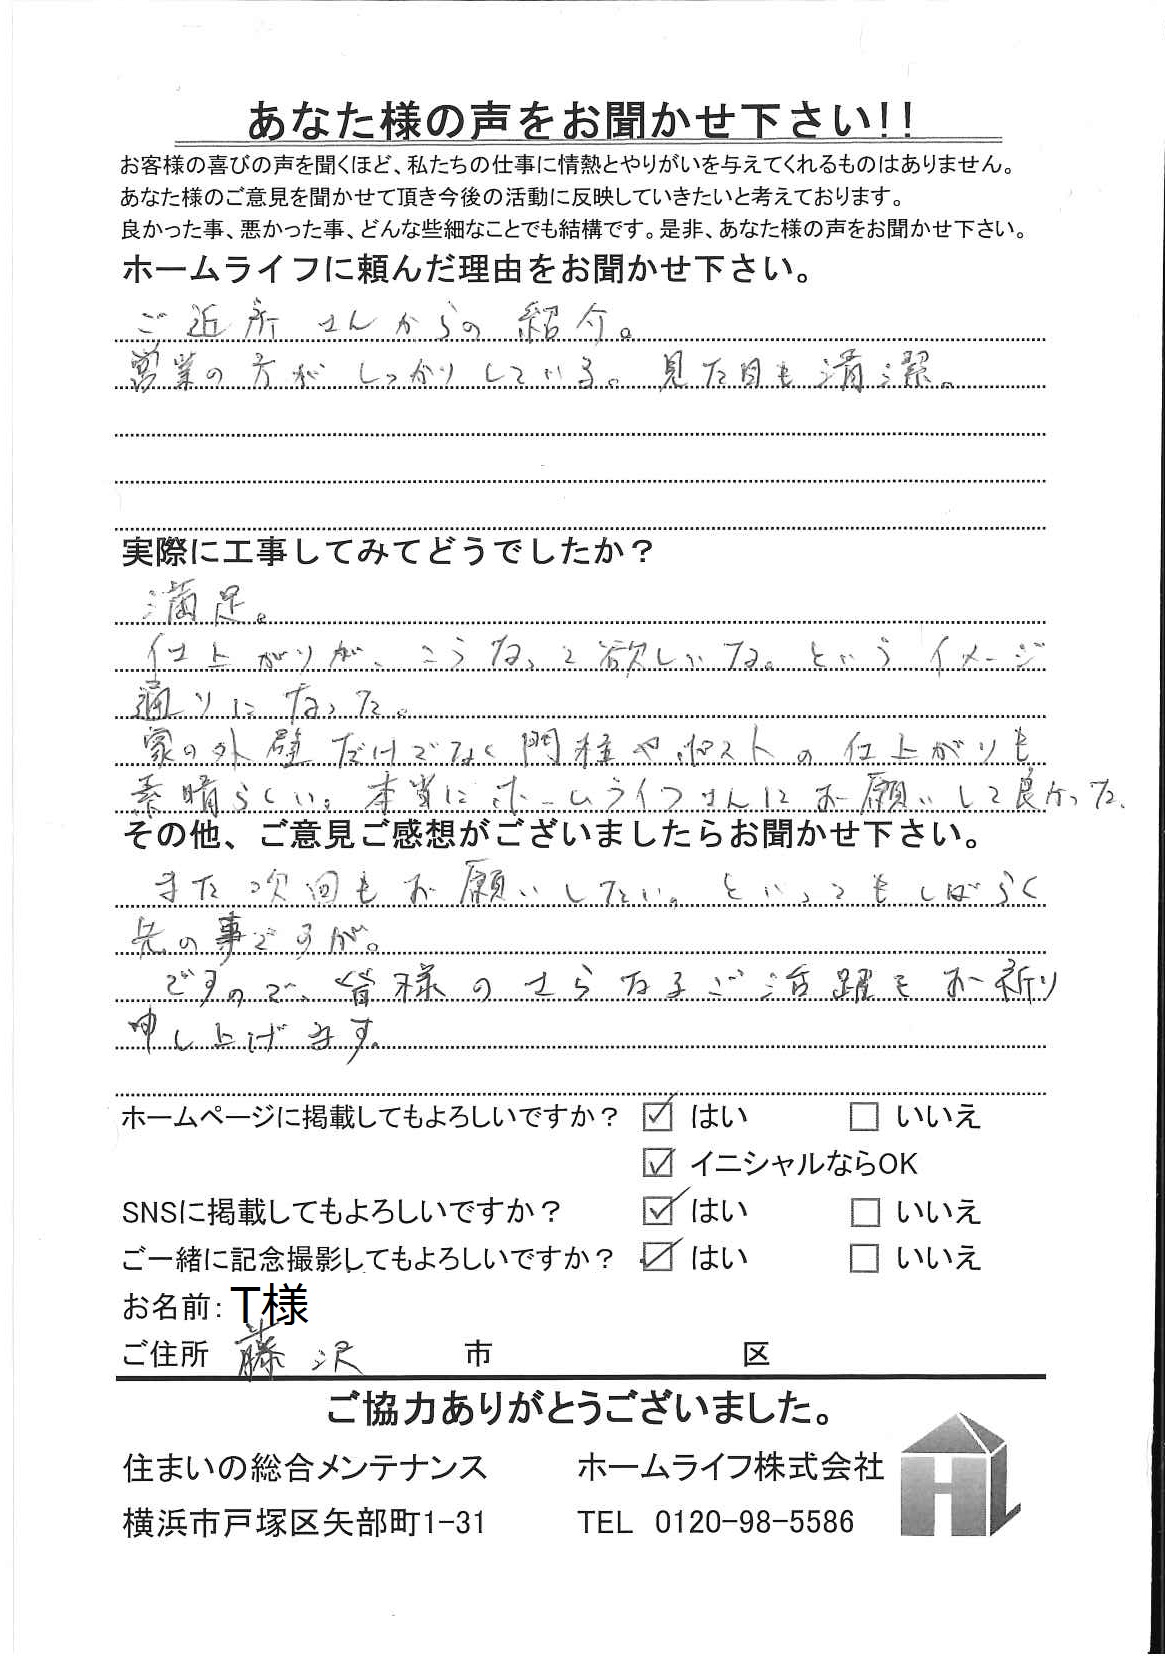 あなた様の声をお聞かせ下さい!!
お客様の喜びの声を聞くほど、私たちの仕事に情熱とやりがいを与えてくれるものはありません。
あなた様のご意見を聞かせて頂き今後の活動に反映していきたいと考えております。
良かった事、悪かった事、どんな些細なことでも結構です。是非、あなた様の声をお聞かせ下さい。
ホームライフに頼んだ理由をお聞かせ下さい。
ご近所さんからの紹介。
営業の方がしっかりしている。見た目も清潔。
実際に工事してみてどうでしたか？
満足。
仕上がりが、こうなって欲しいな。というイメージ
通りになった。
家の外壁だけでなく門柱やポストの仕上がりも
素晴らしい。本当にホームライフさんにお願いして良かった、
その他、ご意見ご感想がございましたらお聞かせ下さい。
また次回もお願いしたい。といってもしばらく
先の事ですが。
ですので、皆様のさらなるご活躍をお祈り
申し上げます。
ホームページに掲載してもよろしいですか？ ☑ はい □ いいえ
☑ イニシャルならOK
SNSに掲載してもよろしいですか？ ☑ はい □ いいえ
ご一緒に記念撮影してもよろしいですか？ ☑ はい □ いいえ
お名前：T様
ご住所 藤沢 市 区
ご協力ありがとうございました。
住まいの総合メンテナンス ホームライフ株式会社
横浜市戸塚区矢部町1-31 TEL 0120-98-5586
HL